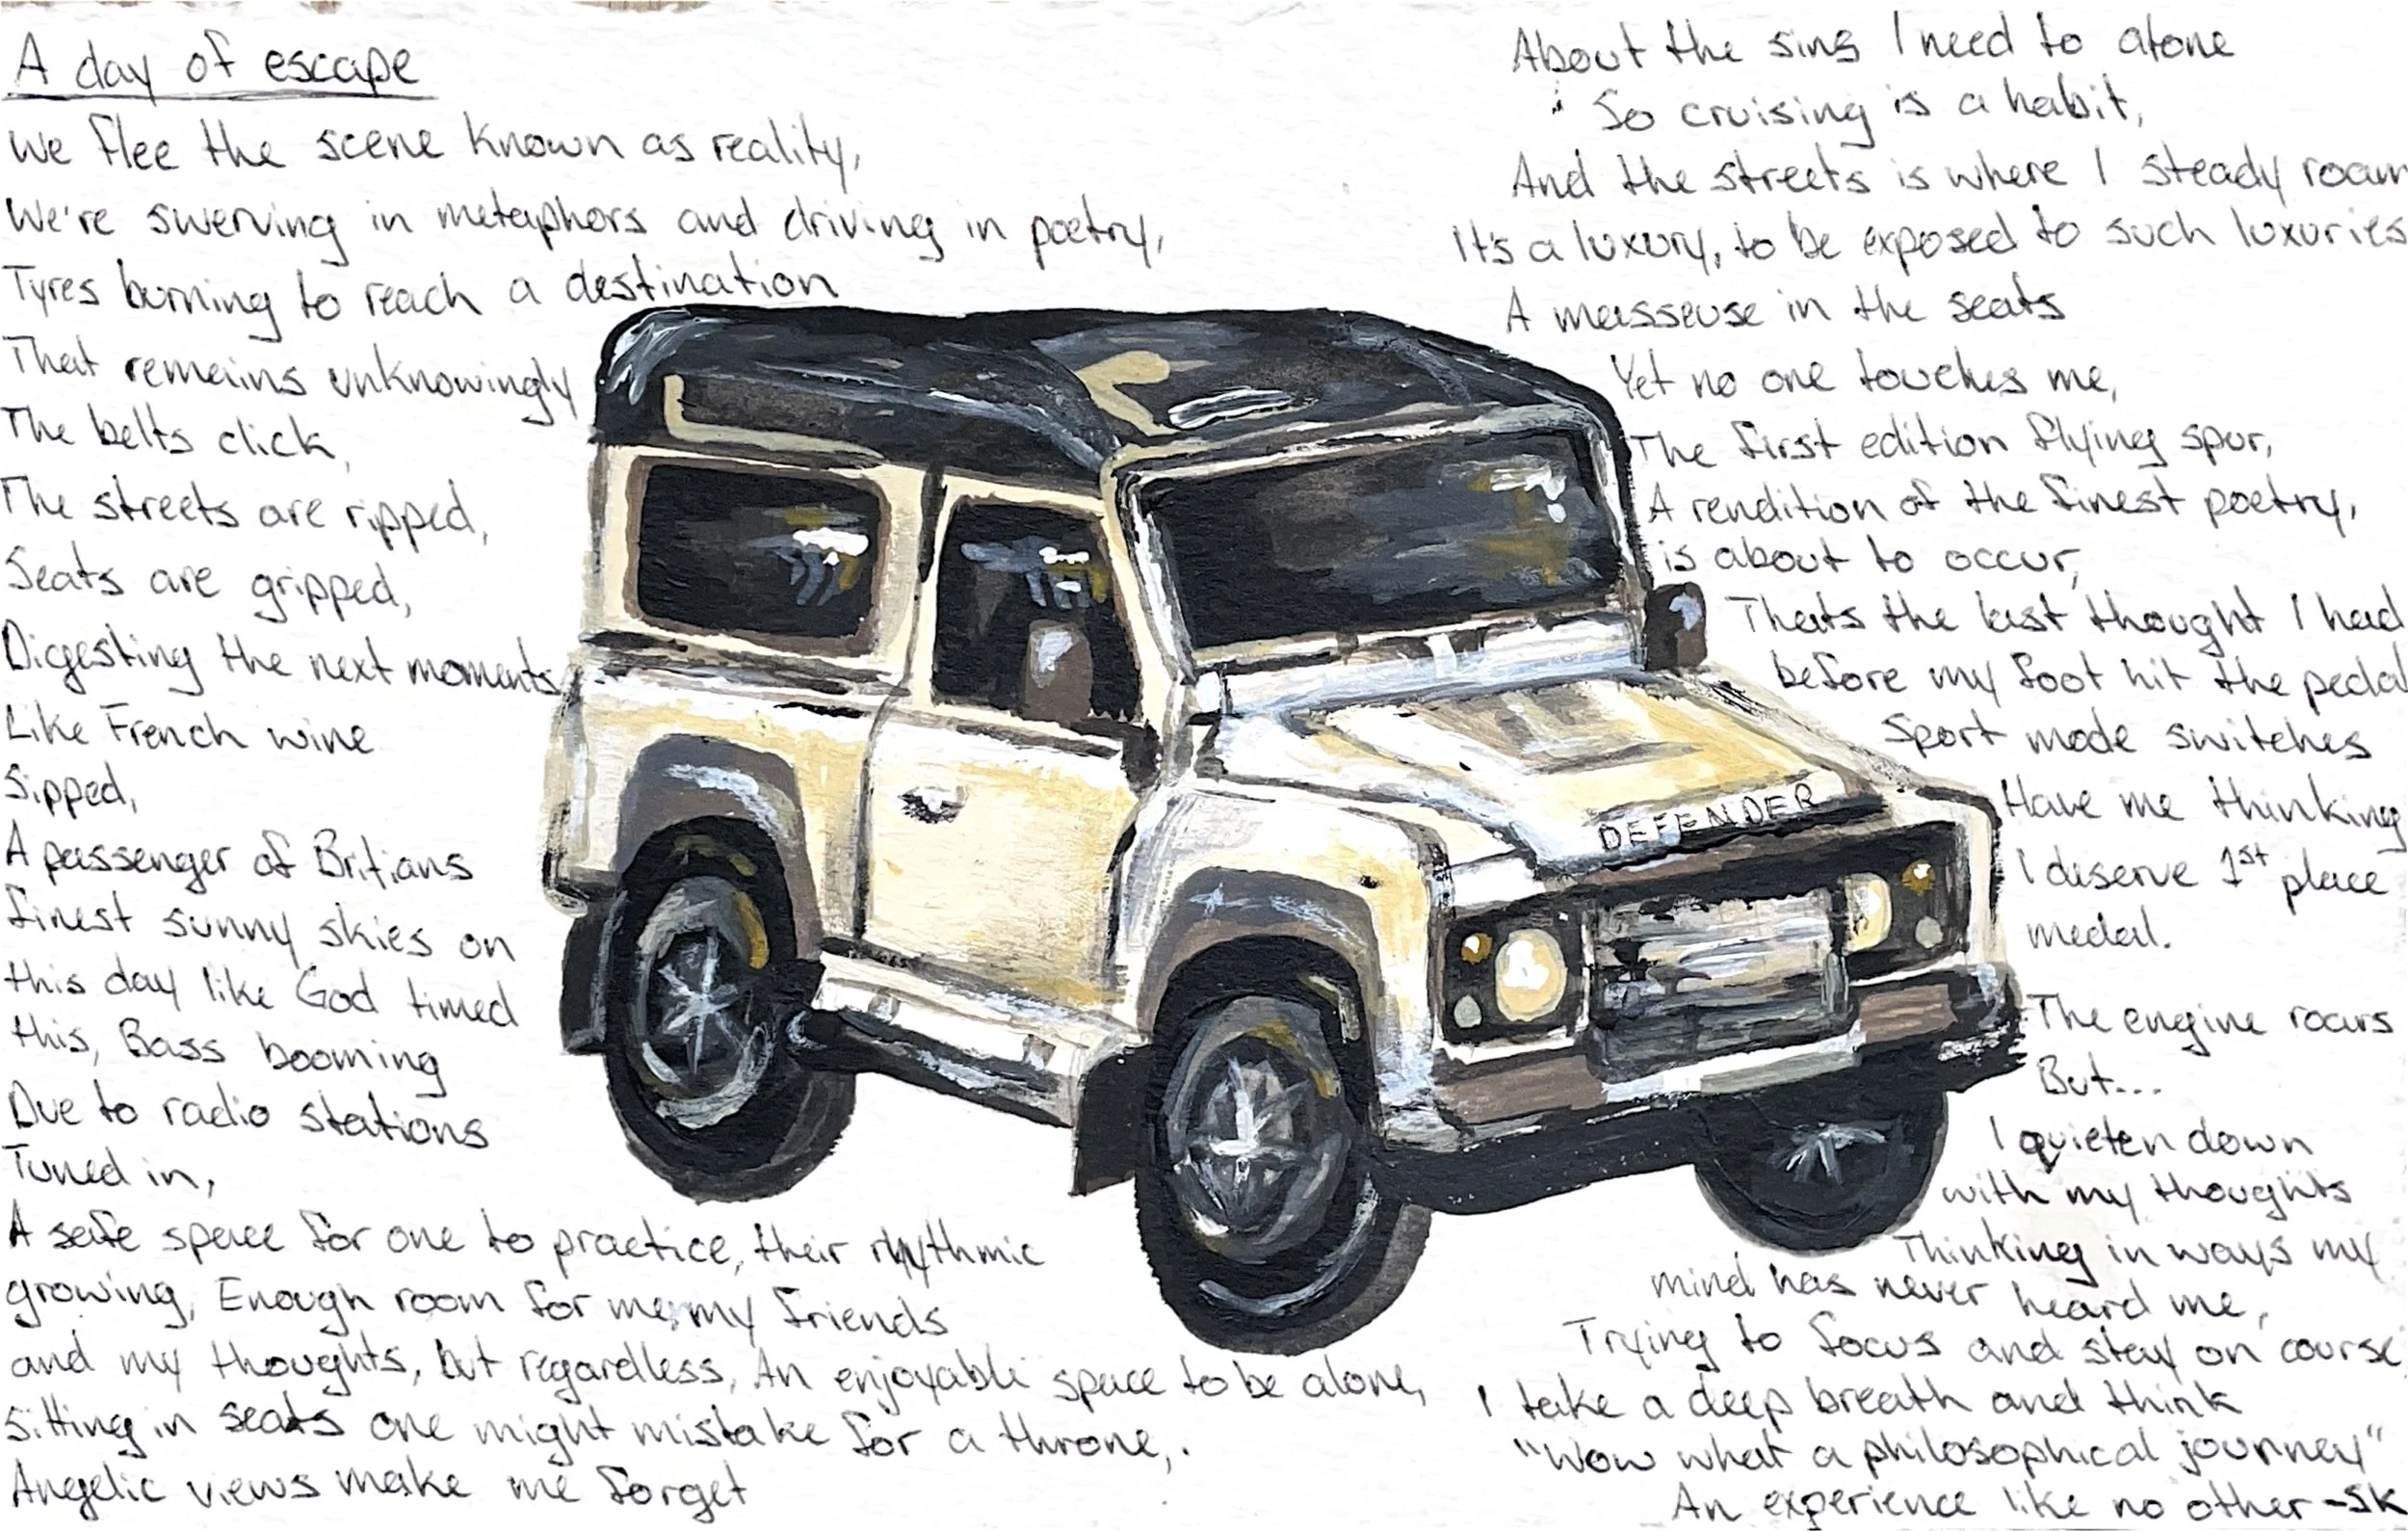 A day of escape
We flee the scene known as reality,
We're swerving in metaphors and driving in poetry,
Tyres burning to reach a destination
That remains unknowingly
The belts click,
The streets are ripped,
Seats are gripped,
Digesting the next moments
Like French wine
Sipped,
A passenger of Britians
finest sunny skies on
this day like God timed
this, Bass booming
Due to radio stations
Tuned in,
A safe space for one to practice, their rhythmic
growing, Enough room for me, my friends
and my thoughts, but regardless, An enjoyable space to be alone,
Sitting in seats one might mistake for a throne,.
Angelic views make me forget
About the sins I need to atone
So cruising is a habit,
And the streets is where I steady roam
It's a luxury, to be exposed to such luxuries
A masseuse in the seats
Yet no one touches me,
The first edition flying spur,
A rendition of the finest poetry,
is about to occur,
Thats the last thought I had
before my foot hit the pedal
Sport mode switches
Have me thinking
I deserve 1st place
medal.
The engine roars
But...
I quieten down
with my thoughts
Thinking in ways my
mind has never heard me,
Trying to focus and stay on course
I take a deep breath and think
"Wow what a philosophical journey"
An experience like no other -SK
DEFENDER